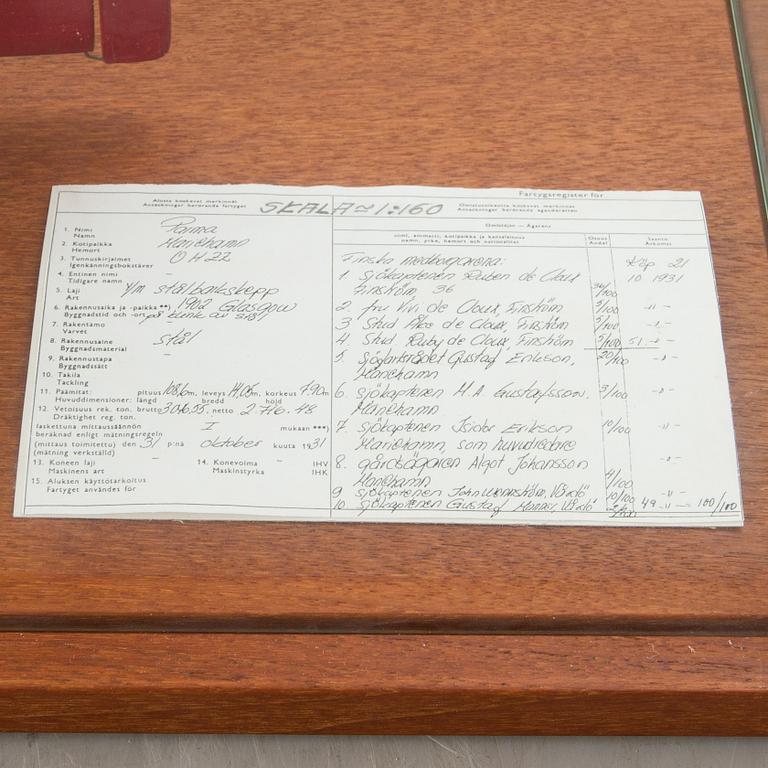 Fartygsregister för
Alusta koskevat merkinnät
Anteckningar berörande fartyget
SKALA ≈ 1:160
Omistusoikeutta koskevat merkinnät
Anteckningar berörande äganderätten
Omistajan — Ägarens
nimi, ammatti, kotipaikka ja kansallisuus
namn, yrke, hemort och nationalitet
Osuus
Andel
Saanto
Åtkomst
1. Nimi
Namn
Parma
2. Kotipaikka
Hemort
Mariehamn
3. Tunnuskirjaimet
Igenkänningsbokstäver
OH22
4. Entinen nimi
Tidigare namn
–
5. Laji
Art
4/m stålbarkskepp
6. Rakennusaika ja -paikka **)
Byggnadstid och -ort
1902 Glasgow
7. Rakentamo
Varvet
–
8. Rakennusaine
Byggnadsmaterial
stål
9. Rakennustapa
Byggnadssätt
–
10. Takila
Tackling
11. Päämitat: pituus 108,6 m, leveys 14,06 m, korkeus 7.90 m
Huvuddimensioner: längd bredd höjd
12. Vetoisuus rek. ton. brutto 3046.55, netto 2716.48
Dräktighet reg. ton.
laskettuna mittaussäännön I mukaan ***)
beräknad enligt mätningsregeln
(mittaus toimitettu) den 31 p:nä oktober kuuta 1931
(mätning verkställd)
13. Koneen laji –
Maskinens art
14. Konevoima – IHV
Maskinstyrka IHK
15. Aluksen käyttötarkoitus
Fartyget användes för –
Finska medborgarna:
Köp 21
10 1931
1. Sjökaptenen Ruben de Cloux
Finström 36
36/100
2. fru Vivi de Cloux, Finström 5/100 -"-
3. Stud. de Cloux, Finström 5/100 -"-
4. Stud. Ruby de Cloux, Finström 5/100 51 -"-
5. Sjöfartsrådet Gustaf Erikson,
Mariehamn
20/100 -"-
6. Sjökaptenen M.A. Gustafsson,
Mariehamn
3/100 -"-
7. Sjökaptenen Isidor Eriksson
Mariehamn, som huvudredare
10/100 -"-
8. gårdsägaren Algot Johansson
Mariehamn
4/100 -"-
9 sjökaptenen John Wennström, Vårdö 10/100 -"-
10. sjökaptenen Gustaf 2/100 49 -"- 100/100